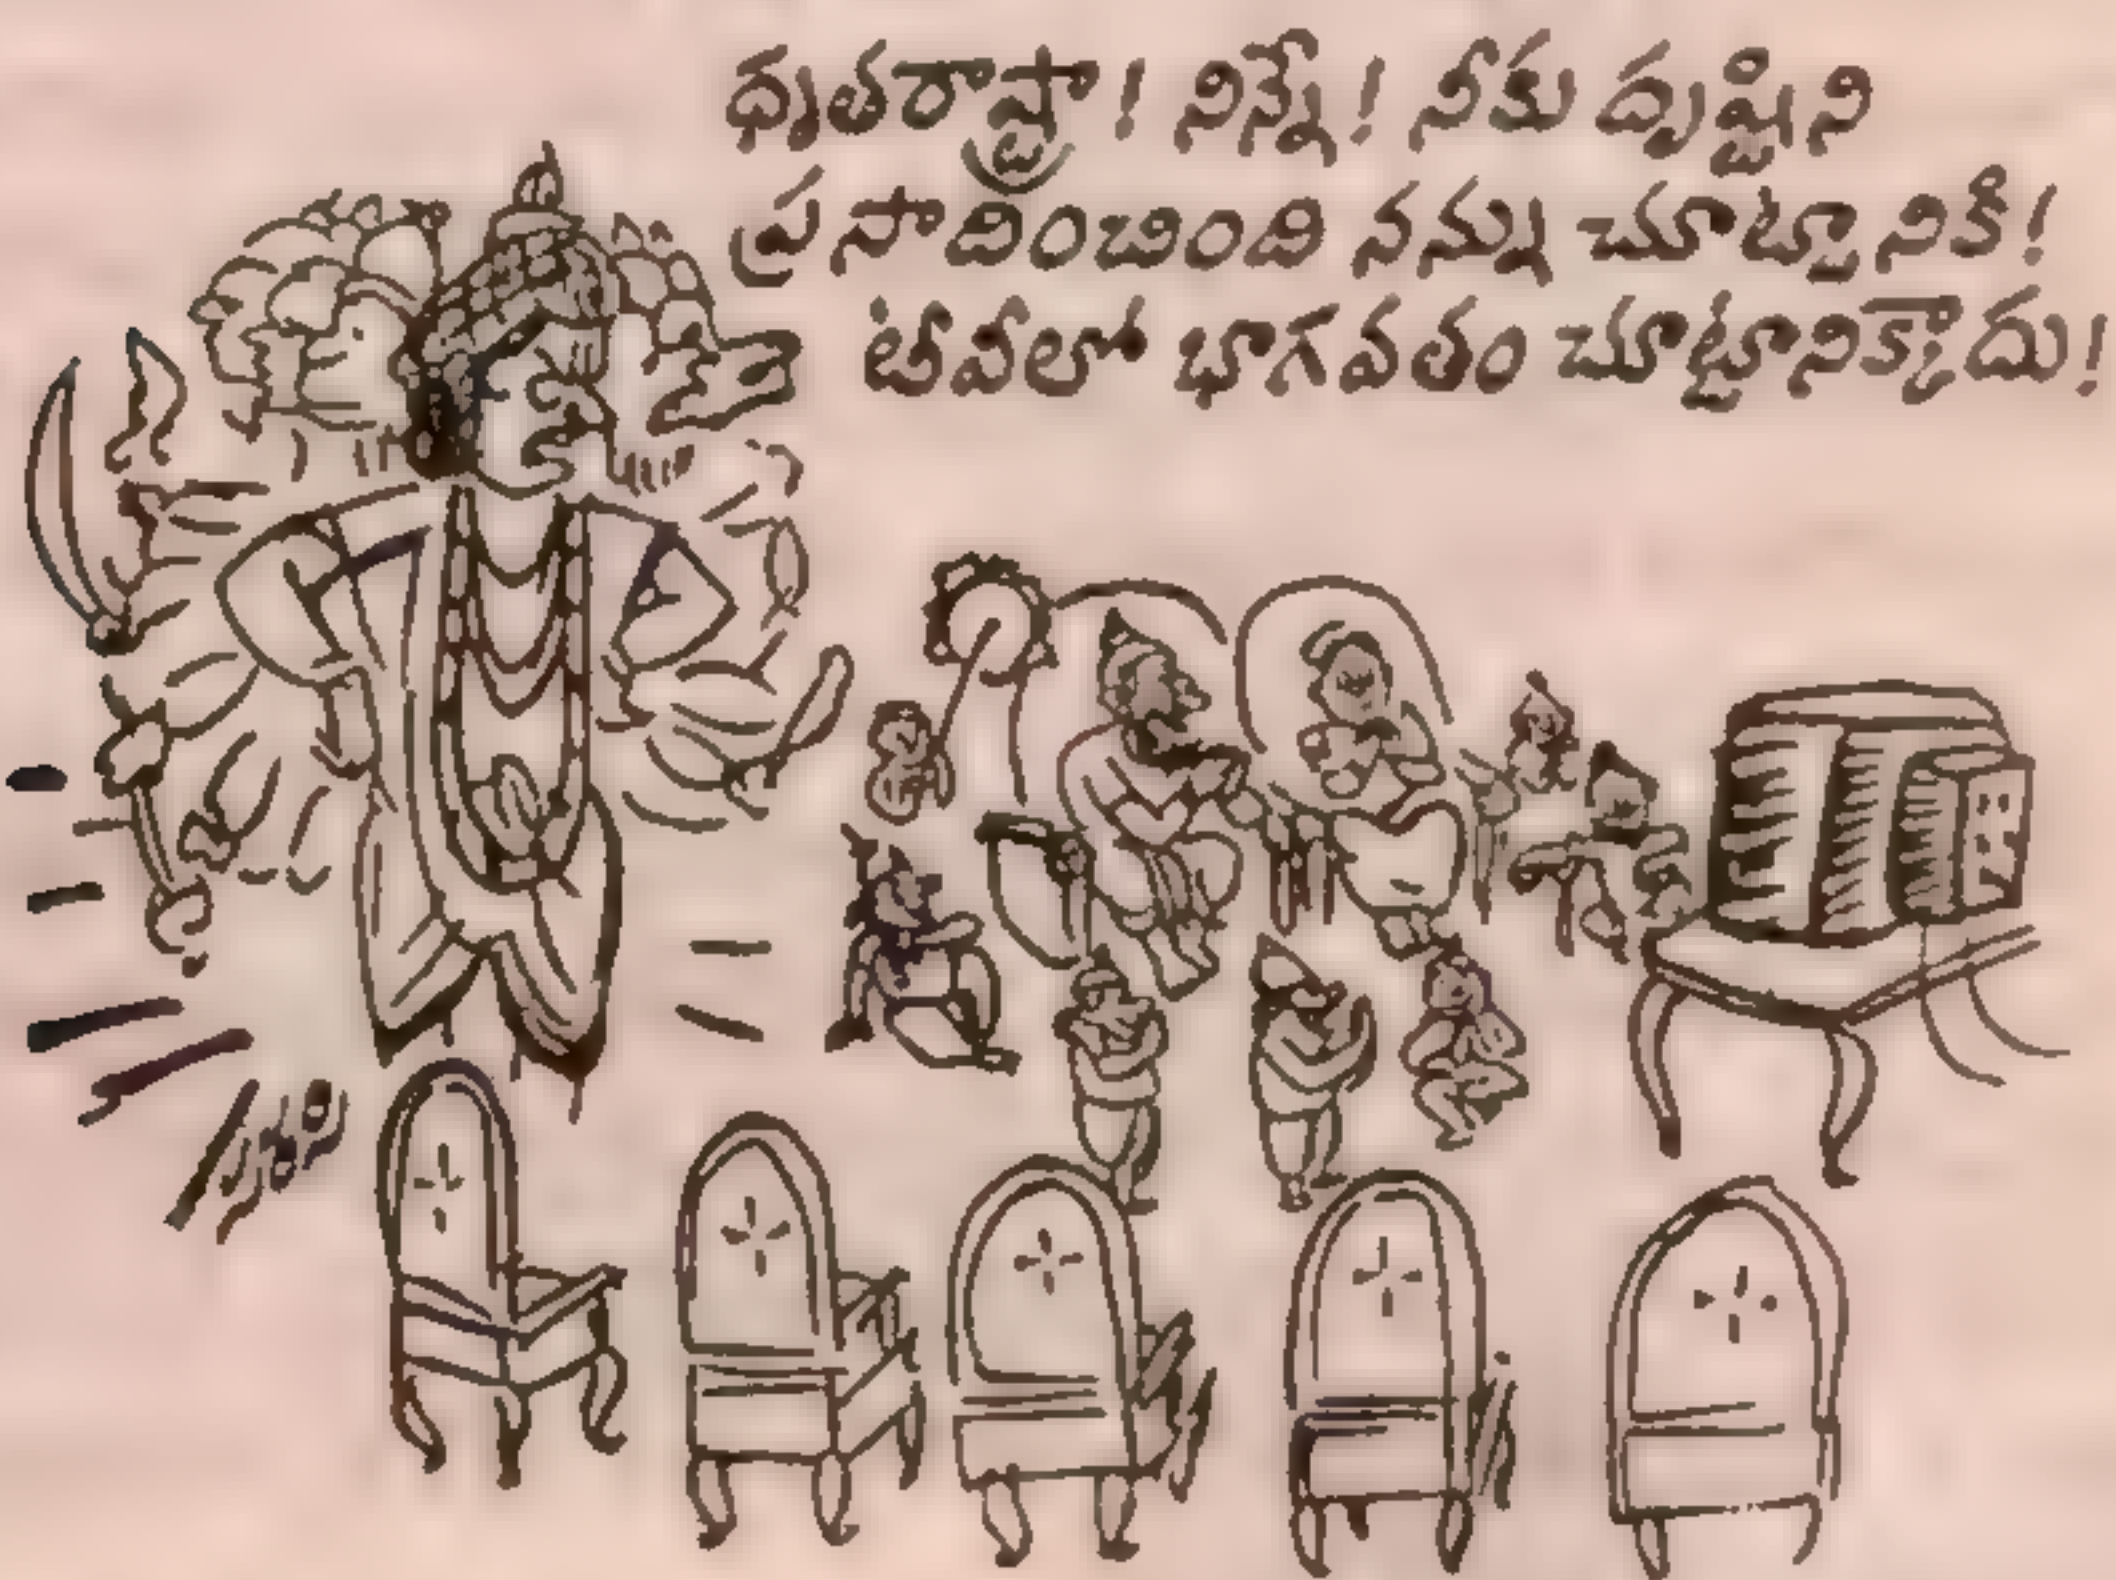 ధృతరాష్ట్రా! నిన్నే! నీకు దృష్టిని
ప్రసాదించింది నన్ను చూట్టానికి!
టీవీలో భాగవతం చూట్టానిక్కాదు!